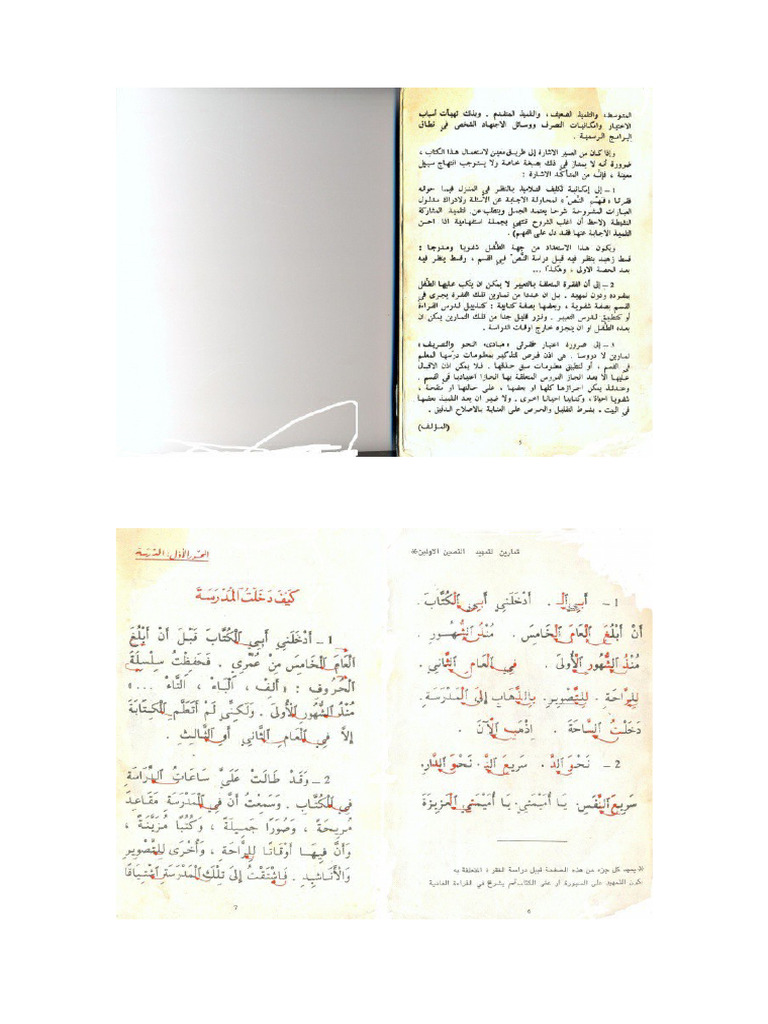 المتوسط، والتلميذ الضعيف، والتلميذ المتقدم . وبذلك تهيأت أسباب
الاختيار وامكانيات التصرف ووسائل الاجتهاد الشخصي في نطاق
البرامج الرسمية .
واذا كان من العسير الاشارة إلى طريق معين لاستعمال هذا الكتاب ،
ضرورة أنه لا يمتاز في ذلك بصبغة خاصة ولا يستوجب انتهاج سبيل
معينة ، فإنه من المتأكد الاشارة :
1 — إلى إمكانية تكليف التلاميذ بالنظر في المنزل فيما حوته
فقرتا « فهم النص » لمحاولة الاجابة عن الأسئلة ولادراك مدلول
العبارات المشروحة شرحا يعتمد الجمل ويتطلب عن التلميذ المشاركة
النشيطة (لاحظ أن اغلب الشروح تنتهي بجملة استفهامية اذا احسن
التلميذ الاجابة عنها فقد دل على الفهم) .
ويكون هذا الاستعداد من جهة الطفل شفويا ومدوجا :
قسط زهيد ينظر فيه قبل دراسة النص في القسم ، وقسط ينظر فيه
بعد الحصة الاولى ، وهكذا ...
2 — إلى أن الفقرة المتعلقة بالتعبير لا يمكن ان يكب عليها الطفل
بمفرده ودون تمهيد . بل ان عددا من تمارين تلك الفقرة يجرى في
القسم بصفة شفوية ، وبعضها بصفة كتابية : كذييل لدرس القراءة
أو كتطبيق لدرس التعبير . ونزر قليل جدا من تلك التمارين يمكن ان
يعده الطفل او ان ينجزه خارج اوقات الدراسة .
3 — إلى ضرورة اعتبار فقرتي «مبادىء النحو والتصريف»
تمارين لا دروسا . هي اذن فرص للتذكير بمعلومات درسها المعلم
في القسم ، أو لتطبيق معلومات سبق حذقها . فلا يمكن اذن الاقبال
عليها الا بعد انجاز الدروس المتعلقة بها انجازا اعتياديا في القسم .
وعندئذ يمكن اجراؤها كلها او بعضها ، على حالتها او منقحة ،
شفويا احيانا ، وكتابيا احيانا اخرى . ولا ضير ان يعد التلميذ بعضها
في البيت . بشرط التقليل والحرص على العناية بالاصلاح الدقيق .
(المؤلف)
5
تمارين لتمهيد النصين الاولين *
1 — أبِي الـ . أَدْخَلَنِي أَبِي الْكُتَّابَ .
أَنْ أَبْلُغَ الْعَامَ الْخَامِسَ . مُنْذُ الشُّهُورِ .
مُنْذُ الشُّهُورِ الْأُولَى . فِي الْعَامِ الثَّانِي .
لِلرَّاحَةِ . لِلتَّصْوِيرِ . بِالذَّهَابِ إِلَى الْمَدْرَسَةِ .
دَخَلْتُ السَّاحَةَ . اِذْهَبِ الْآنَ .
2 — نَحْوَ الدَّ . سَرِيعَ الدَّ . نَحْوَ الدَّارِ .
سَرِيعَ النَّفَسِ . يَا أُمَيْمَتِي . يَا أُمَيْمَتِي الْعَزِيزَةَ
* يمهد كل جزء من هذه الصفحة قبيل دراسة الفقرة المتعلقة به
يكون التمهيد على السبورة أو على الكتاب ثم يشرع في القراءة العادية
6
المحور الأول : المدرسة
كَيْفَ دَخَلْتُ الْمَدْرَسَةَ
1 — أَدْخَلَنِي أَبِي الْكُتَّابَ قَبْلَ أَنْ أَبْلُغَ
الْعَامَ الْخَامِسَ مِنْ عُمْرِي . فَحَفِظْتُ سِلْسِلَةَ
الْحُرُوفِ : « أَلِفْ ، الْبَاءْ ، التَّاءْ ... »
مُنْذُ الشُّهُورِ الْأُولَى . وَلَكِنِّي لَمْ أَتَعَلَّمِ الْكِتَابَةَ
إِلَّا فِي الْعَامِ الثَّانِي أَوِ الثَّالِثِ .
2 — وَقَدْ طَالَتْ عَلَيَّ سَاعَاتُ الدِّرَاسَةِ
فِي الْكُتَّابِ . وَسَمِعْتُ أَنَّ فِي الْمَدْرَسَةِ مَقَاعِدَ
مُرِيحَةً ، وَصُوَرًا جَمِيلَةً ، وَكُتُبًا مُزَيَّنَةً ،
وَأَنَّ فِيهَا أَوْقَاتًا لِلرَّاحَةِ ، وَأُخْرَى لِلتَّصْوِيرِ
وَالْأَنَاشِيدِ . فَاشْتَقْتُ إِلَى تِلْكَ الْمَدْرَسَةِ اشْتِيَاقًا
7